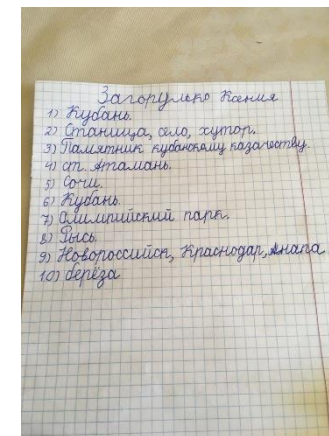 Загорулько Ксения
1) Кубань.
2) Станица, село, хутор.
3) Памятник кубанскому казачеству.
4) ст. Атамань.
5) Сочи.
6) Кубань.
7) Олимпийский парк.
8) Рысь.
9) Новороссийск, Краснодар, Анапа
10) берёза